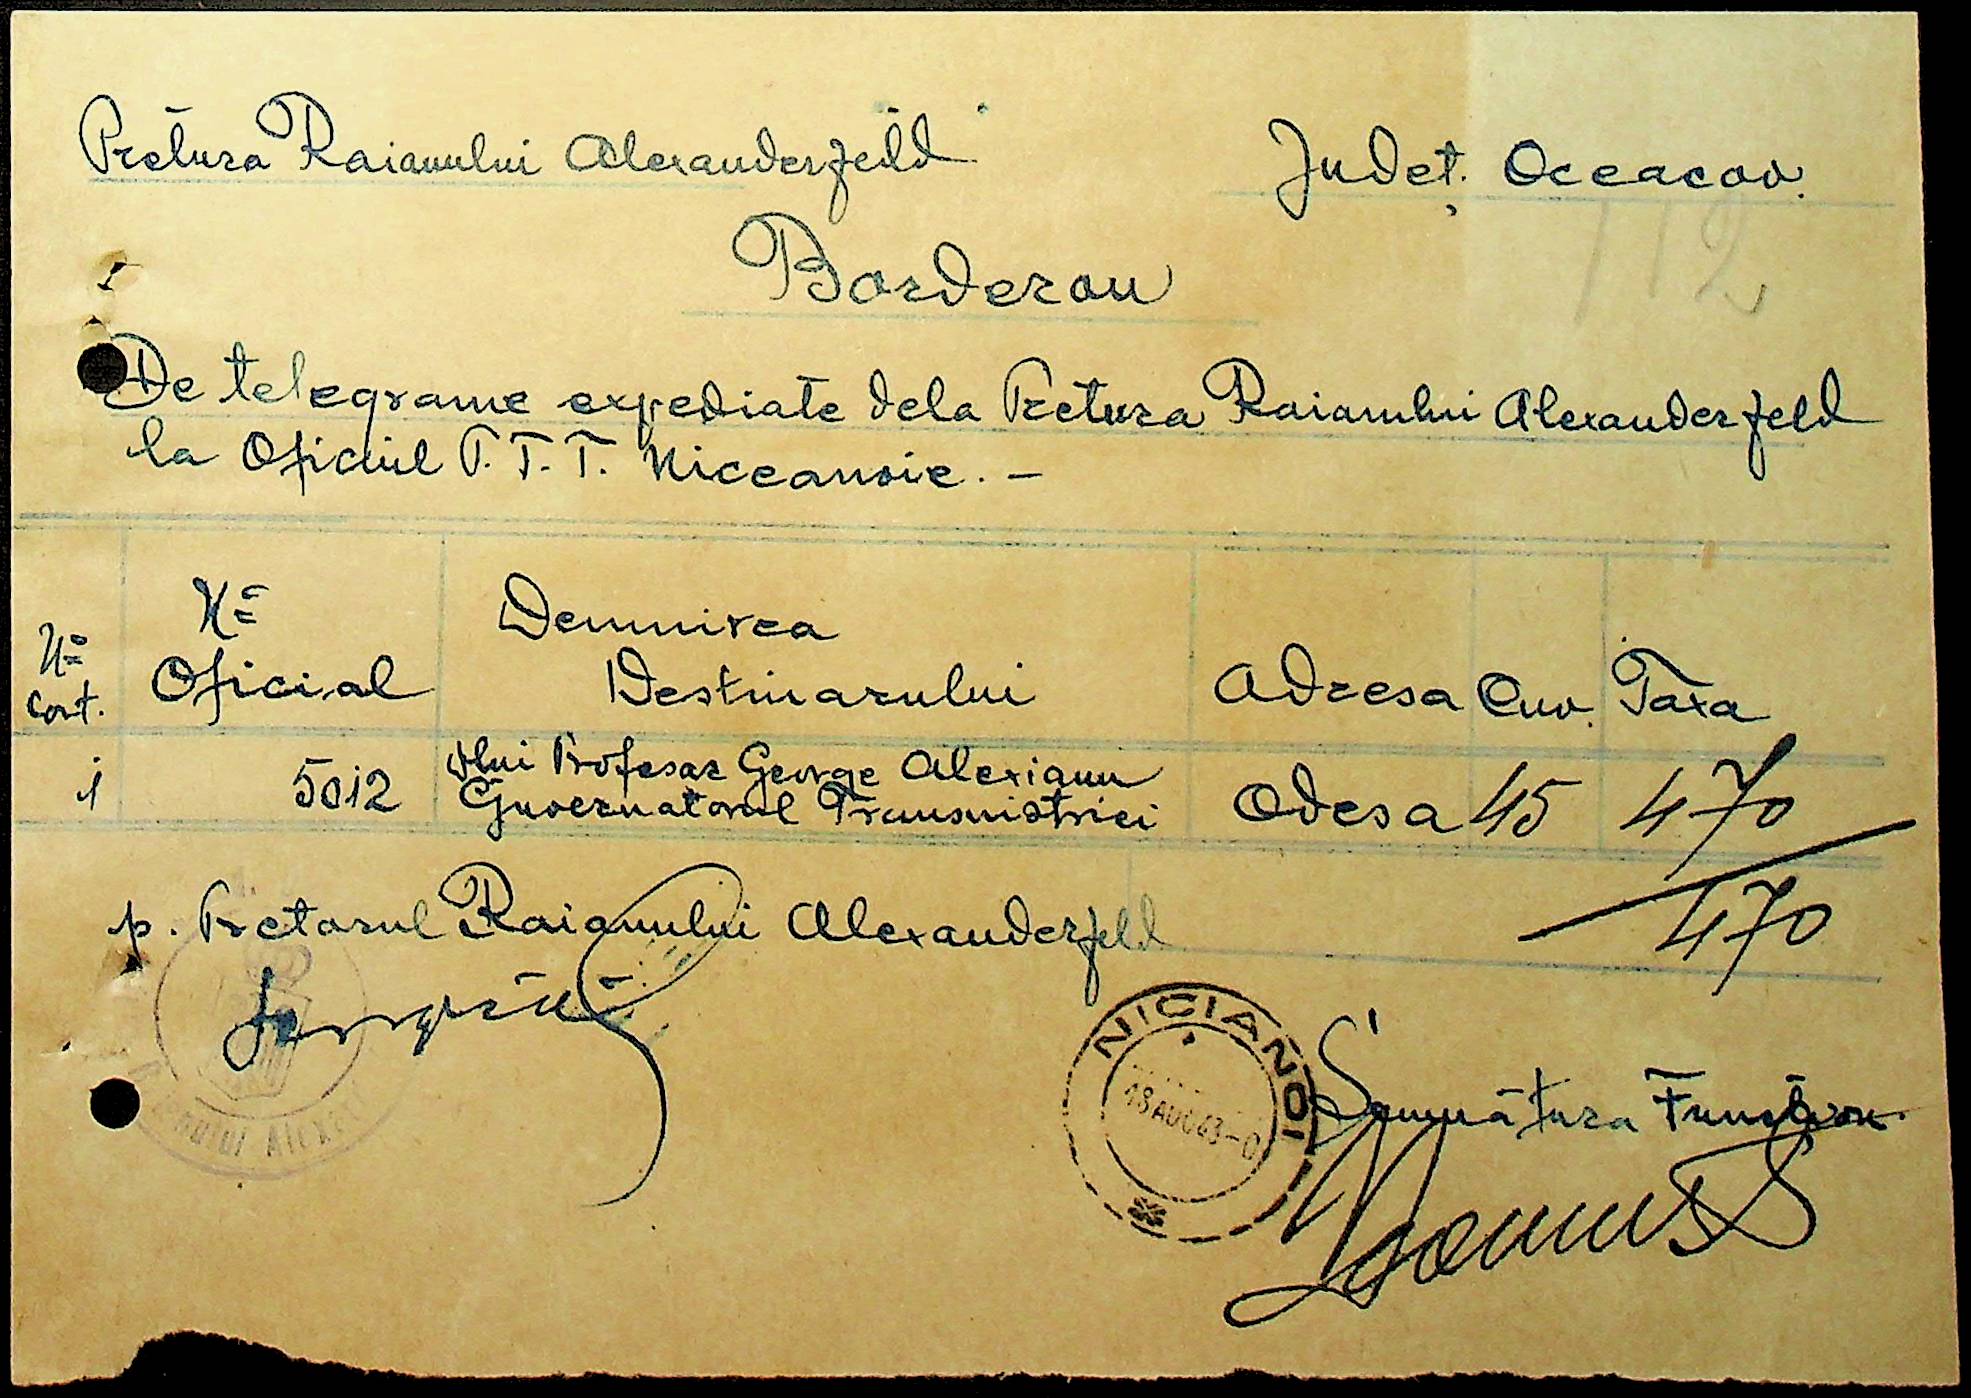 Pretura Raianului Alexanderfeld
Județ. Oceacov.
112
Borderou
De telegrame expediate dela Pretura Raianului Alexanderfeld
la Oficiul P.T.T. Niceanoie. -
No cort. No Oficial Denmirea Destinarului Adresa Cuv. Taxa
1 5012 Dlui Profesor George Alexianu Guvernatorul Transnistriei Odesa 45 470
470
p. Pretorul Raianului Alexanderfeld
NICIANOI
18 AUG 43
Semnătura Funcționar.